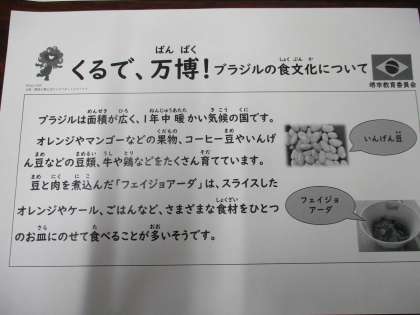 くるで、万博！ブラジルの食文化について
堺市教育委員会
ブラジルは面積が広く、1年中暖かい気候の国です。
オレンジやマンゴーなどの果物、コーヒー豆やいんげ
ん豆などの豆類、牛や鶏などをたくさん育てています。
豆と肉を煮込んだ「フェイジョアーダ」は、スライスした
オレンジやケール、ごはんなど、さまざまな食材をひとつ
のお皿にのせて食べることが多いそうです。
いんげん豆
フェイジョ
アーダ